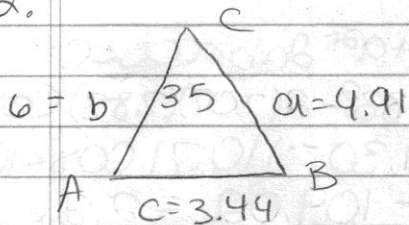 2.
C
6 = b 35 a=4.91
A B
C=3.44